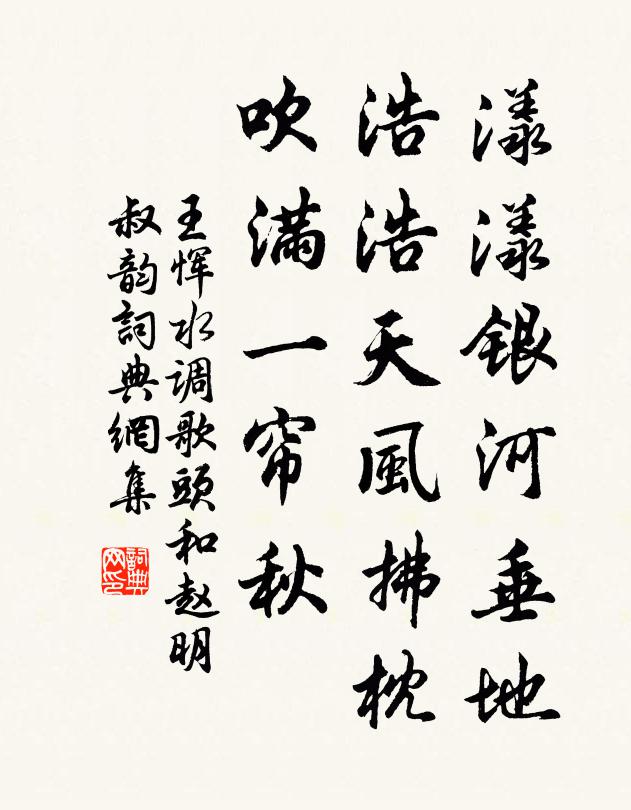 漾漾銀河垂地
浩浩天風拂枕
吹滿一帘秋
王恽水调歌頭和赵明
叔韵詞典網集
詞典网印